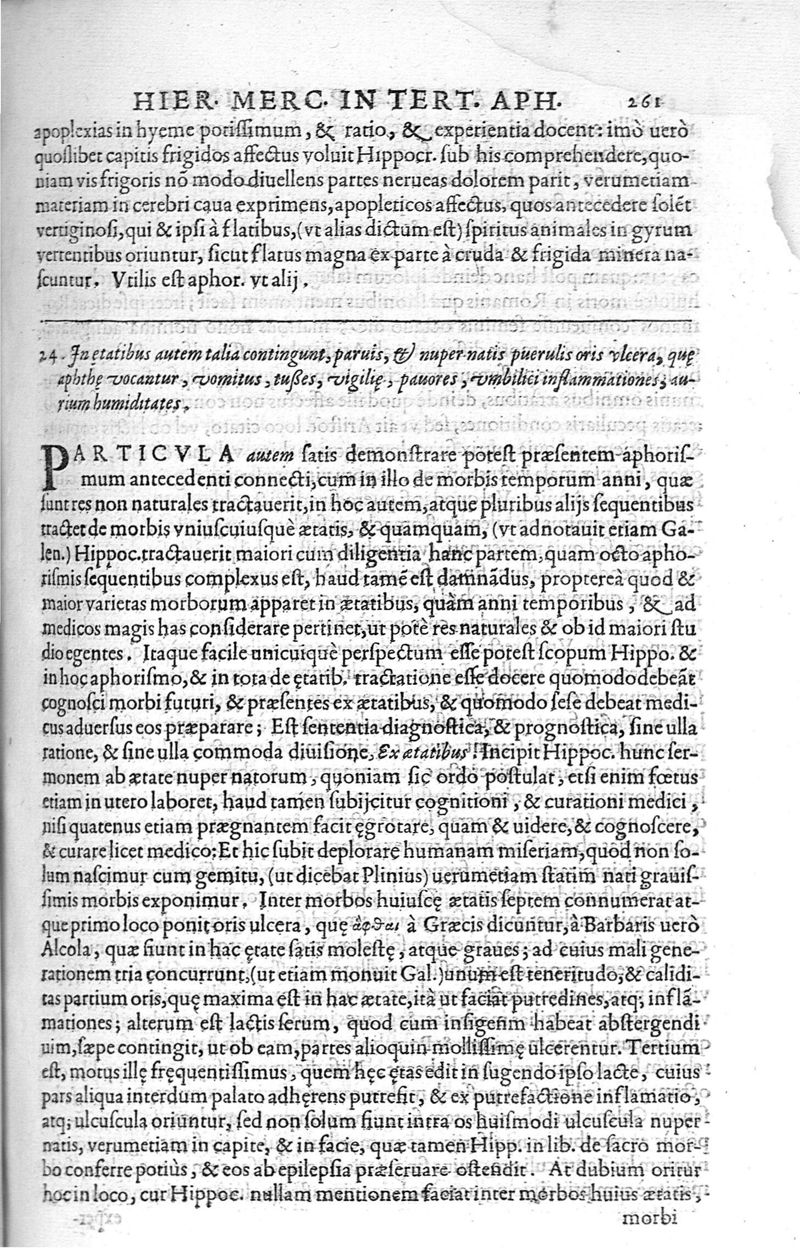 HIER. MERC. IN TERT. APH. 261
apoplexias in hyeme potissimum, & ratio, & experientia docent: imò uerò
quoslibet capitis frigidos affectus voluit Hippocr. sub his comprehendere, quo-
niam vis frigoris nō modo diuellens partes nerueas dolorem parit, verumetiam
materiam in cerebri caua exprimens, apopleticos affectus, quos antecedere solēt
vertiginosi, qui & ipsi à flatibus, (vt alias dictum est) spiritus animales in gyrum
vertentibus oriuntur, sicut flatus magna ex parte à cruda & frigida minera na-
scuntur. Vtilis est aphor. vt alij.
24. In ętatibus autem talia contingunt, paruis, & nuper natis puerulis oris vlcera, quę
aphthę vocantur, vomitus, tußes, vigilię, pauores, vmbilici inflammationes, au-
rium humiditates.
PARTICVLA autem satis demonstrare potest præsentem aphoris-
mum antecedenti connecti, cum in illo de morbis temporum anni, quæ
sunt res non naturales tractauerit, in hoc autem, atque pluribus alijs sequentibus
tractet de morbis vniuscuiusquè ætatis, & quamquam, (vt adnotauit etiam Ga-
len.) Hippoc. tractauerit maiori cum diligentia hanc partem, quam octo apho-
rismis sequentibus complexus est, haud tamē est damnādus, proptereà quod &
maior varietas morborum apparet in ætatibus, quàm anni temporibus, & ad
medicos magis has considerare pertinet, ut potè res naturales & ob id maiori stu
dio egentes. Itaque facile unicuiquè perspectum esse potest scopum Hippo. &
in hoc aphorismo, & in tota de ętatib. tractatione esse docere quomodo debeāt
cognosci morbi futuri, & præsentes ex ætatibus, & quomodo sese debeat medi-
cus aduersus eos præparare; Est sententia diagnostica, & prognostica, sine ulla
ratione, & sine ulla commoda diuisione, Ex ætatibus! Incipit Hippoc. hunc ser-
monem ab ætate nuper natorum, quoniam sic ordo postulat, etsi enim fœtus
etiam in utero laboret, haud tamen subijcitur cognitioni, & curationi medici,
nisi quatenus etiam prægnantem facit ęgrotare, quam & uidere, & cognoscere,
& curare licet medico; Et hic subit deplorare humanam miseriam, quod non so-
lum nascimur cum gemitu, (ut dicebat Plinius) uerumetiam statim nati grauis-
simis morbis exponimur. Inter morbos huiuscę ætatis septem connumerat at-
que primo loco ponit oris ulcera, quę ἄφθαι à Græcis dicuntur, à Barbaris uerò
Alcola, quæ fiunt in hac ętate satis molestę, atque graues; ad cuius mali gene-
rationem tria concurrunt, (ut etiam monuit Gal.) unum est teneritudo, & calidi-
tas partium oris, quę maxima ęst in hac ætate, ità ut faciat putredines, atq; inflā-
mationes; alterum est lactis serum, quod cum insignem habeat abstergendi
uim, sæpe contingit, ut ob eam, partes alioquin mollissimę ulcerentur. Tertium
est, motus illę fręquentissimus, quem hęc ętas edit in sugendo ipso lacte, cuius
pars aliqua interdum palato adhęrens putrefit, & ex putrefactione inflamatio,
atq; ulcuscula oriuntur, sed non solum fiunt intra os huismodi ulcuscula nuper
natis, verumetiam in capite, & in facie, quæ tamen Hipp. in lib. de sacro mor-
bo conferre potiùs, & eos ab epilepsia præseruare ostendit. At dubium oritur
hoc in loco, cur Hippoc. nullam mentionem faciat inter morbos huius ætatis,
morbi